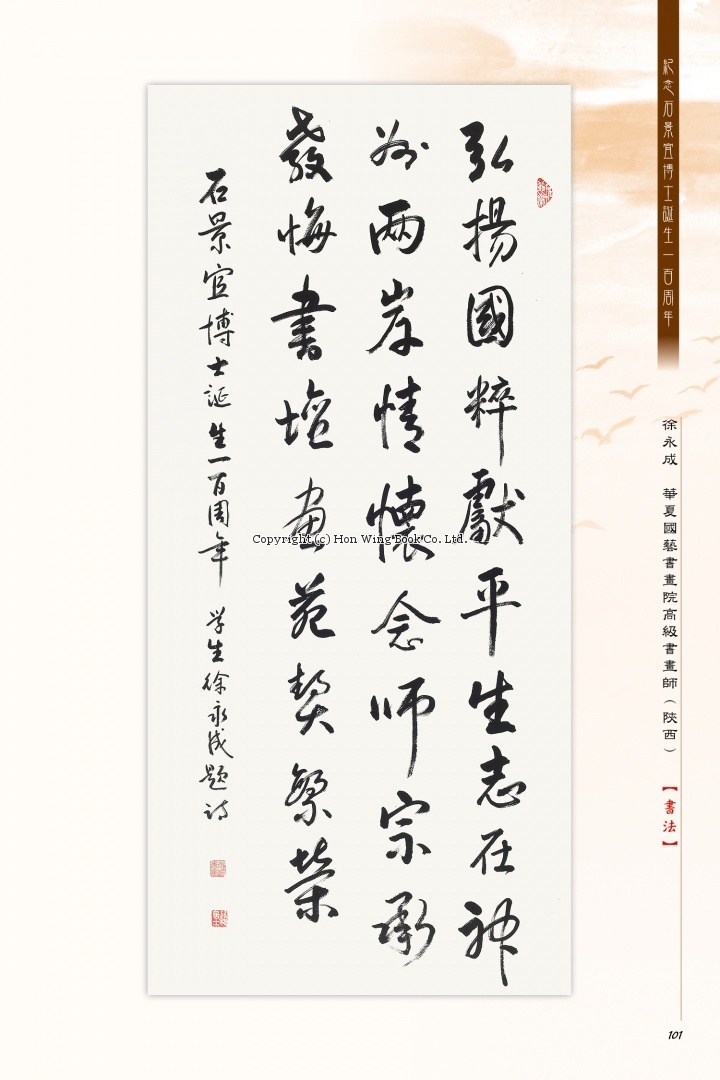 紀念石景宜博士誕生一百周年
徐永成 華夏國藝書畫院高級書畫師（陝西）
【書法】
弘揚國粹獻平生志在神
州两岸情懷念师宗承
教悔書壇畫苑獎繁榮
石景宜博士誕生一百周年 学生徐永成题诗
Copyright (c) Hon Wing Book Co. Ltd.
101